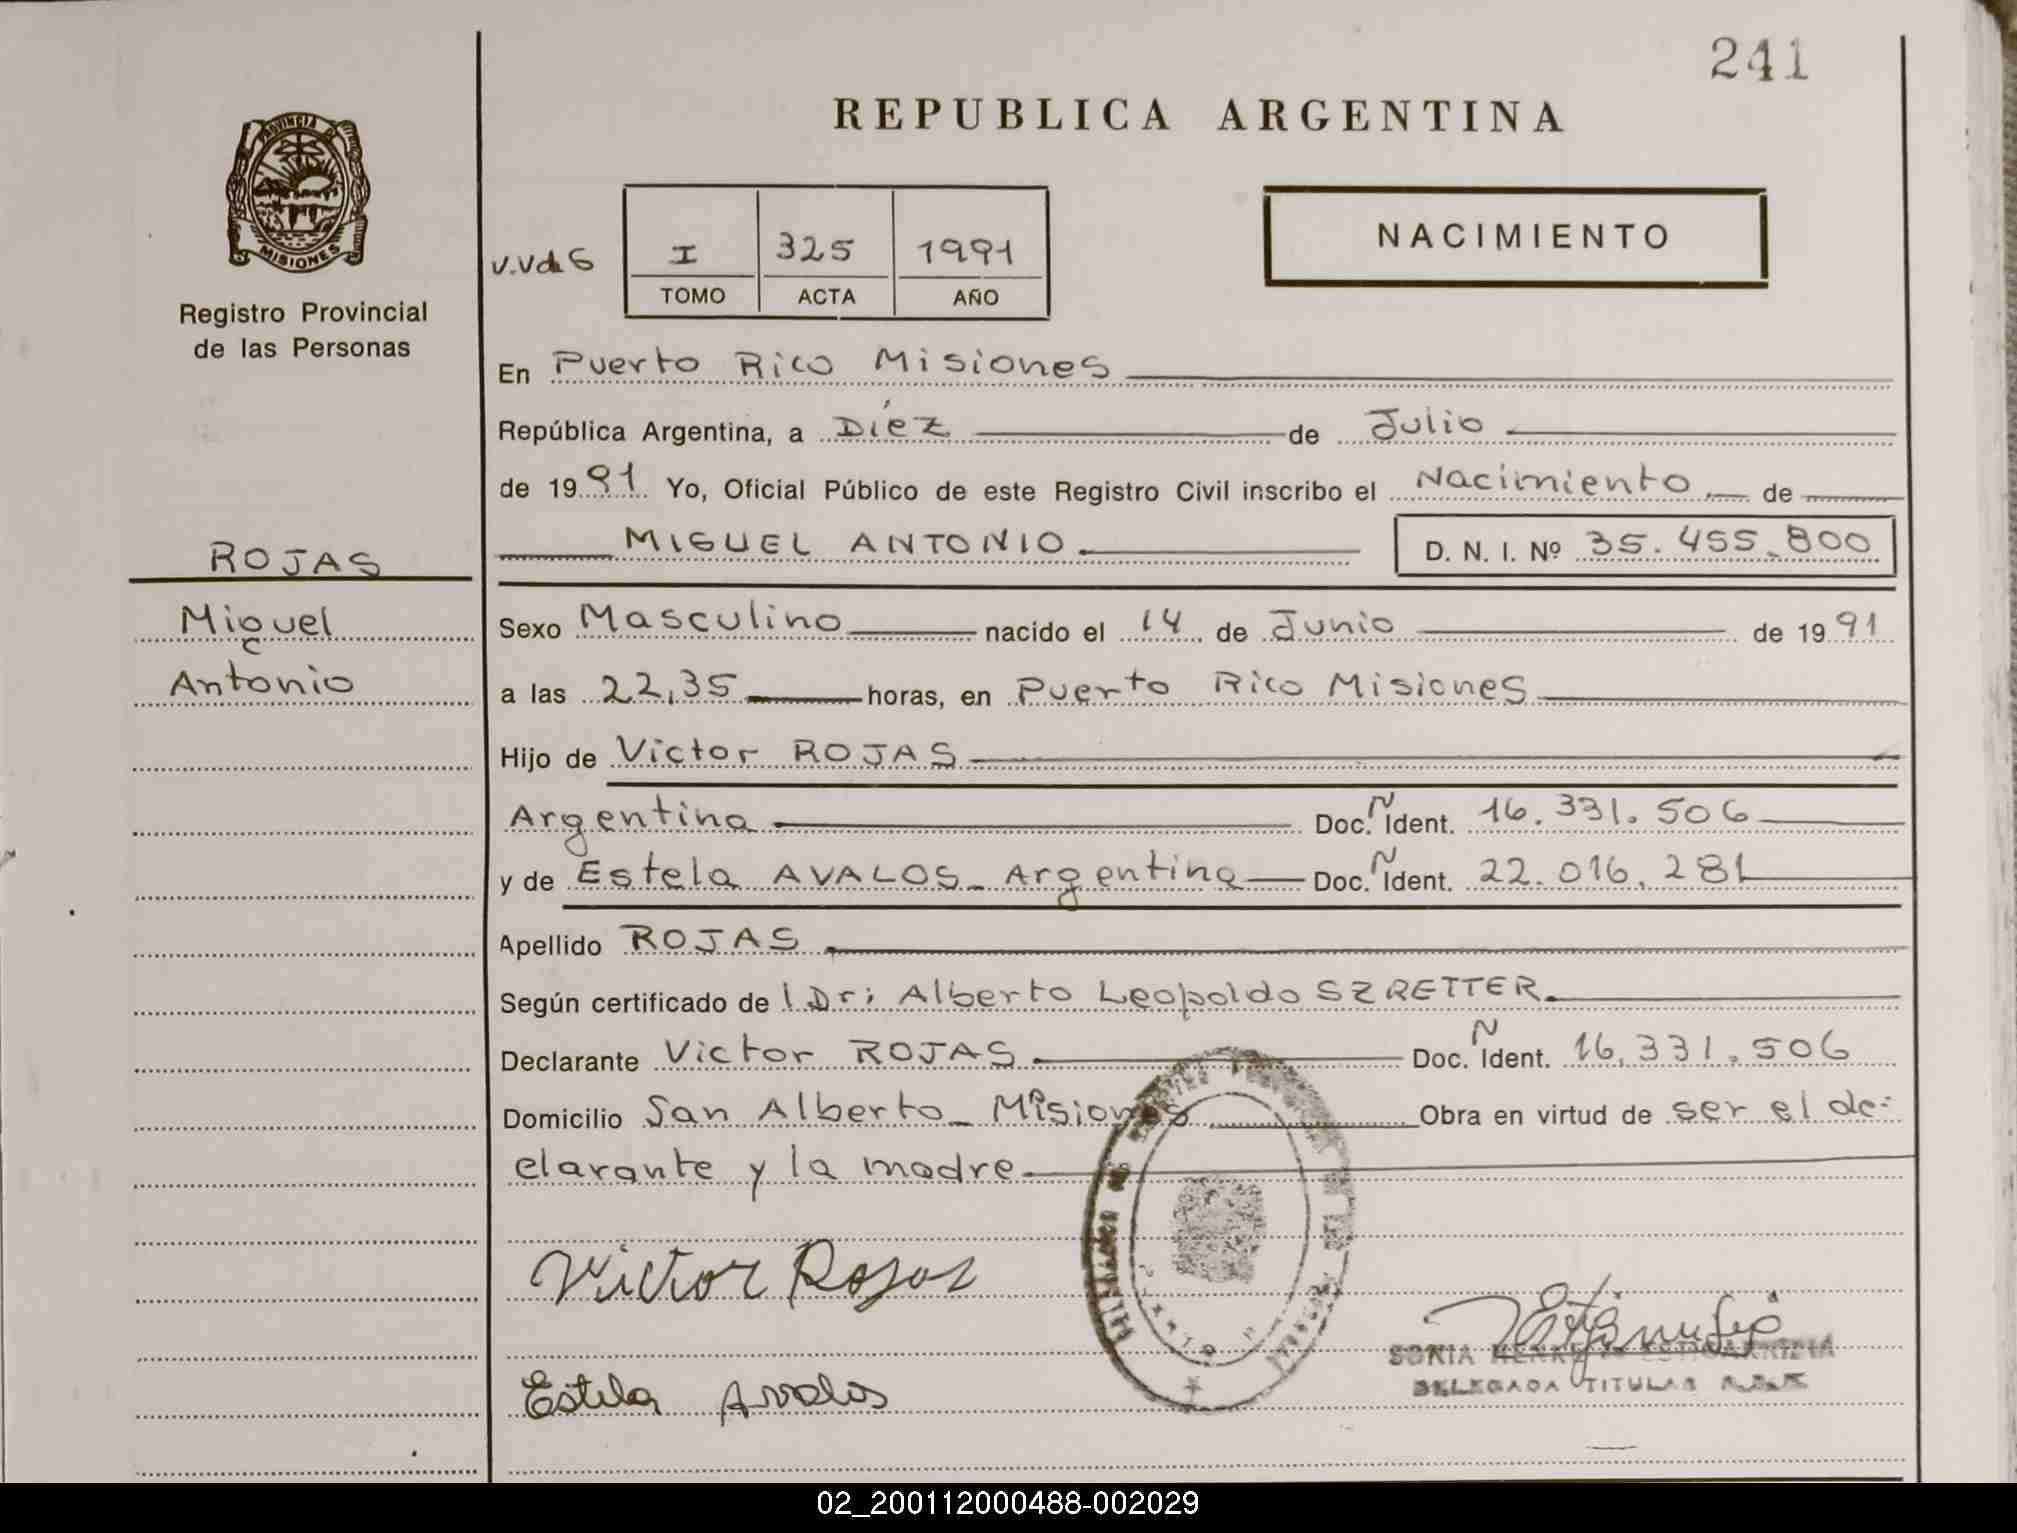 241
REPUBLICA ARGENTINA
PROVINCIA DE
MISIONES
Registro Provincial
de las Personas
V.V de G
I 325 1991
TOMO ACTA AÑO
NACIMIENTO
En Puerto Rico Misiones
República Argentina, a Díez de Julio
de 1991 Yo, Oficial Público de este Registro Civil inscribo el Nacimiento de
MIGUEL ANTONIO D. N. I. Nº 35.455.800
ROJAS
Miguel
Antonio
Sexo Masculino nacido el 14 de Junio de 1991
a las 22,35 horas, en Puerto Rico Misiones
Hijo de Victor ROJAS
Argentina Doc. N Ident. 16.331.506
y de Estela AVALOS_ Argentina Doc. N Ident. 22.016.281
Apellido ROJAS
Según certificado de l Dr: Alberto Leopoldo SZRETTER.
Declarante Victor ROJAS Doc. N Ident. 16.331.506
Domicilio San Alberto_ Misiones Obra en virtud de ser el de-
clarante y la madre
Victor Rojas
SONIA
DELEGADA TITULAR
Estela Avalos
02_200112000488-002029